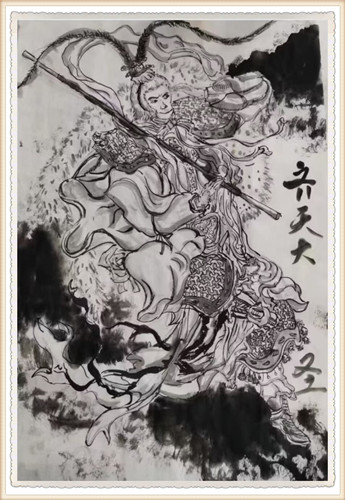 齐天大圣